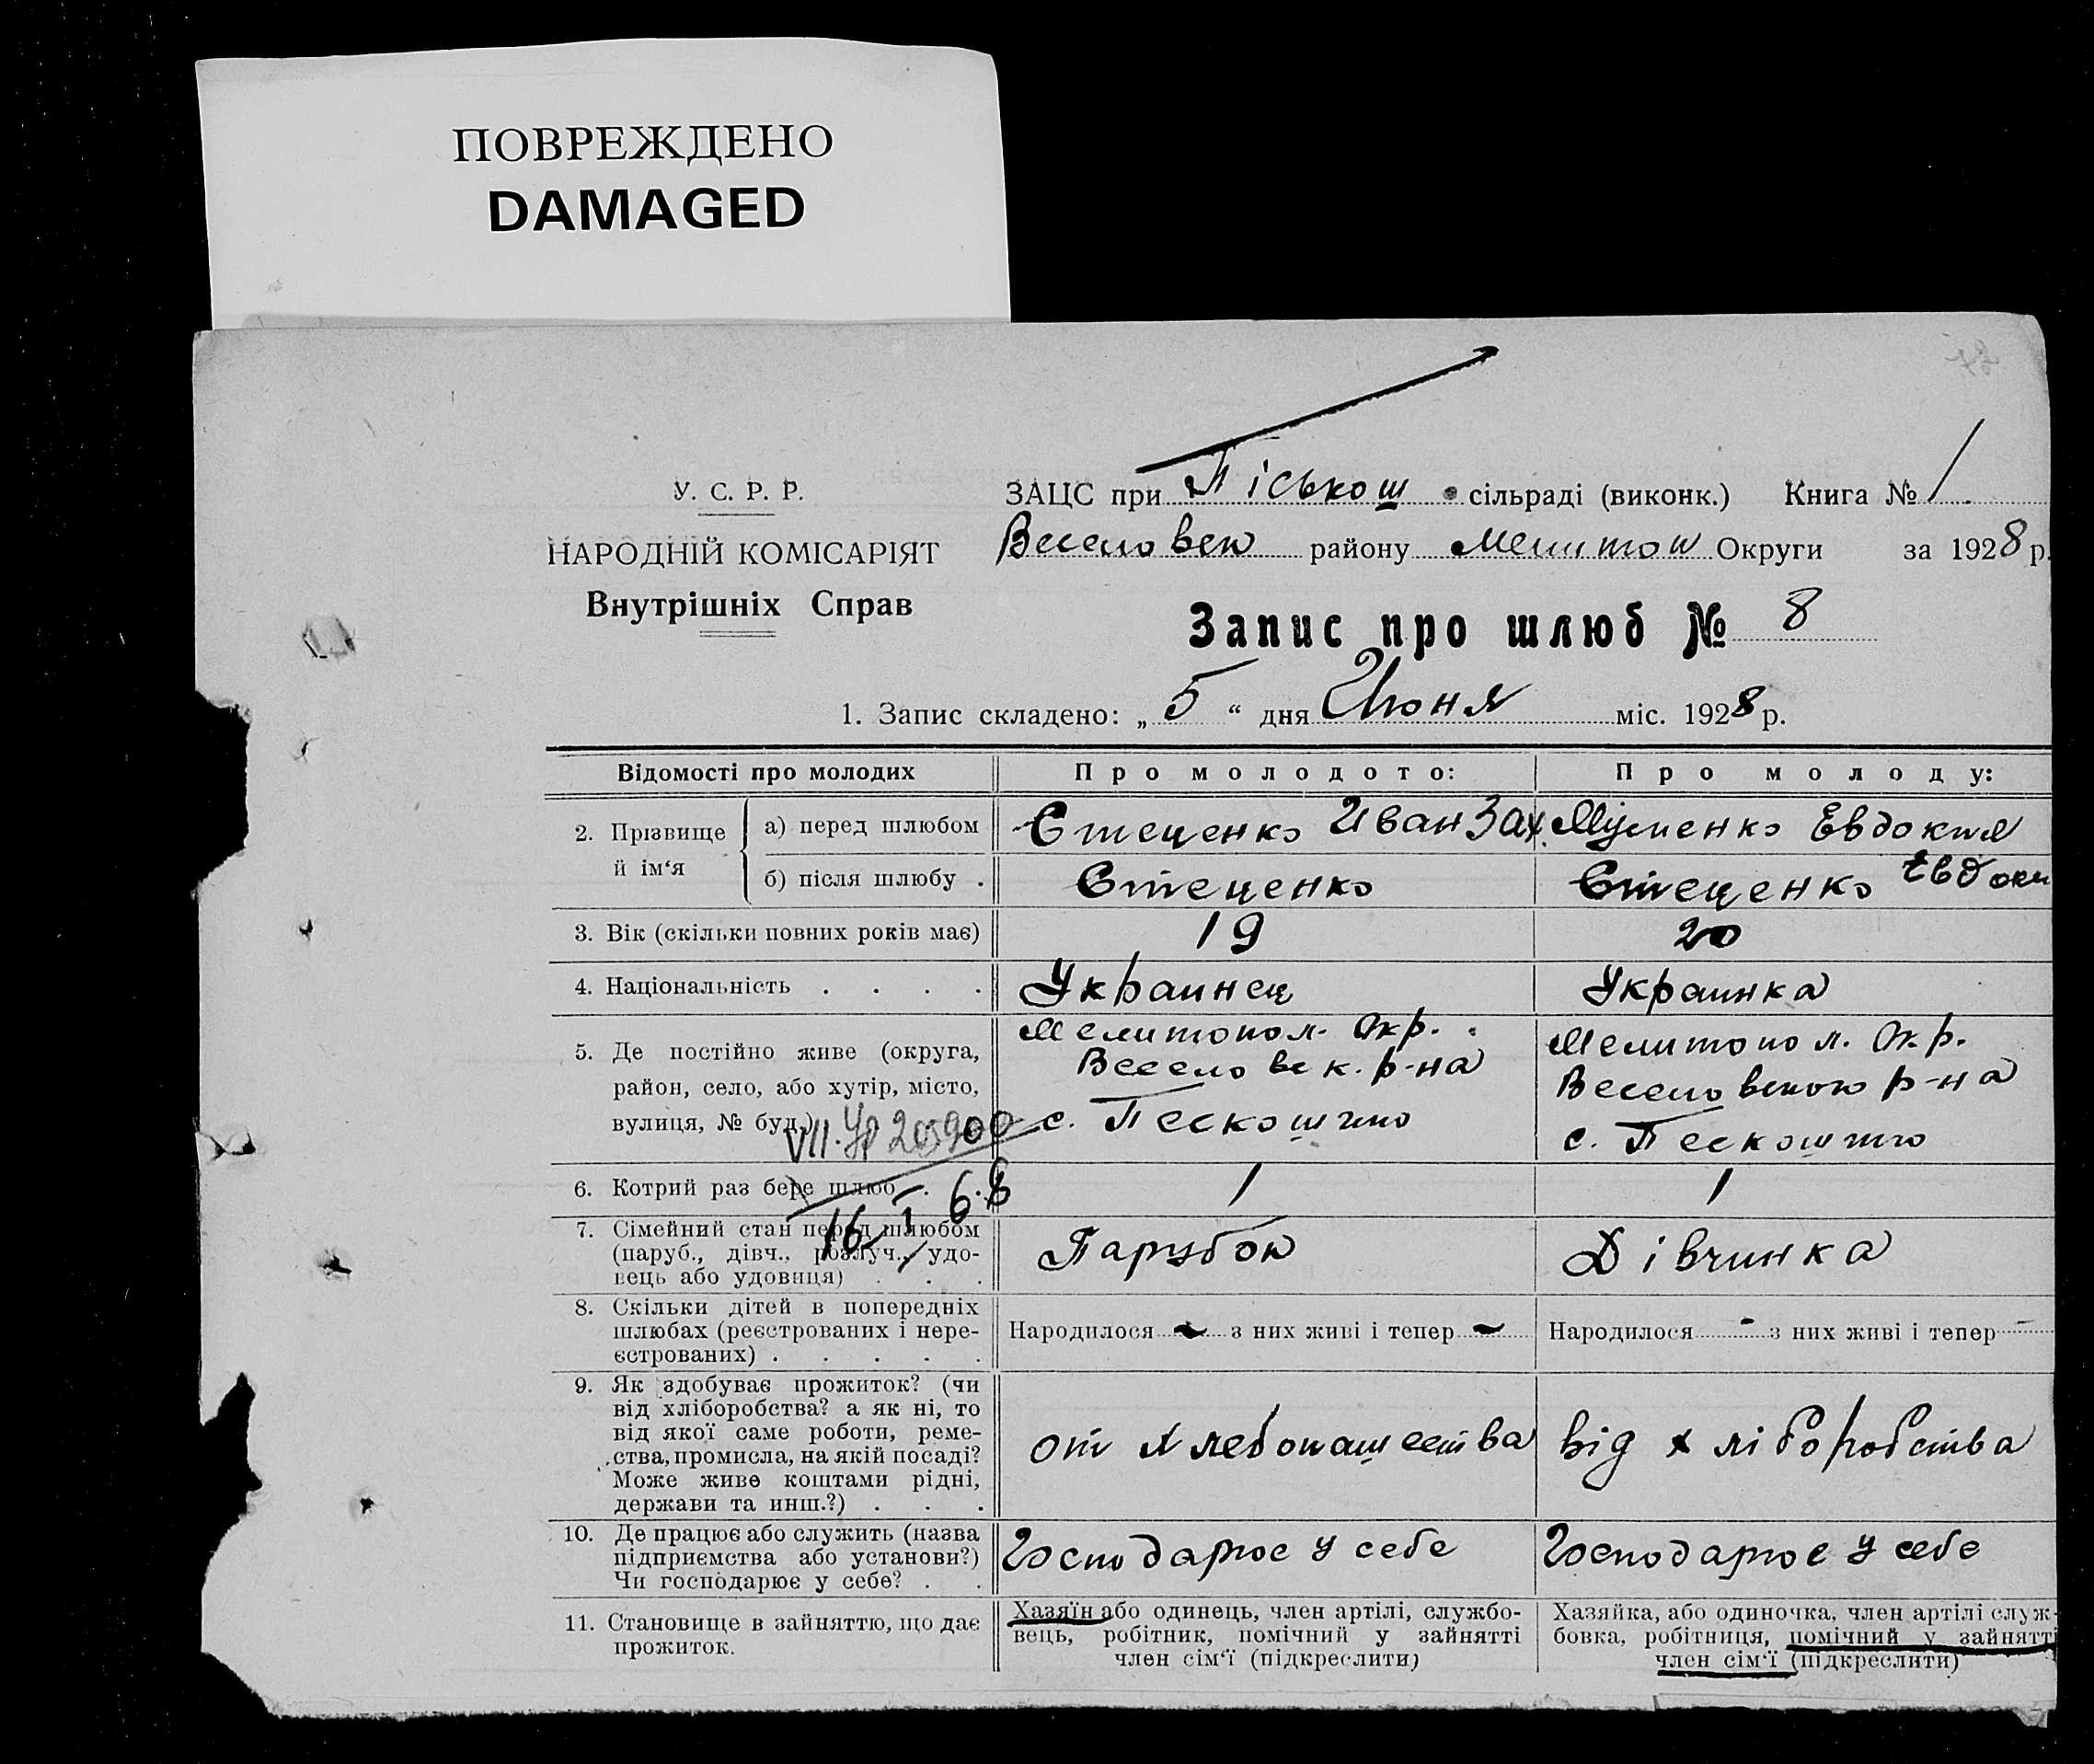 ПОВРЕЖДЕНО
DAMAGED
У. С. Р. Р.
НАРОДНІЙ КОМІСАРІЯТ
Внутрішніх Справ
ЗАЦС при Піськош сільраді (виконк.) Книга № 1
Веселовск району Мелитоп Округи за 1928 р.
Запис про шлюб № 8
1. Запис складено: „ 5 “ дня Июня міс. 1928 р.
Відомості про молодих Про молодого: Про молоду:
2. Прізвище й ім‘я
а) перед шлюбом Стеценко Иван Зах. Евдокия
б) після шлюбу . Стеценко Стеценко Евдоки
3. Вік (скільки повних років має) 19 20
4. Національність . . . . Украинец Украинка
5. Де постійно живе (округа,
район, село, або хутір, місто,
вулиця, № буд.)
Мелитопол. Окр.
Веселовск. р-на
с. Пескошино
Мелитопол. Окр.
Веселовского р-на
с. Пескошино
VII. УР 205900
16 I 68
6. Котрий раз бере шлюб . . 1 1
7. Сімейний стан перед шлюбом
(паруб., дівч., розлуч., удо-
вець або удовиця) . . .
Парубок Дівчинка
8. Скільки дітей в попередніх
шлюбах (реєстрованих і нере-
єстрованих) . . . . .
Народилося - з них живі і тепер - Народилося - з них живі і тепер -
9. Як здобуває прожиток? (чи
від хліборобства? а як ні, то
від якої саме роботи, реме-
ства, промисла, на якій посаді?
Може живе коштами рідні,
держави та инш.?) . . .
от хлебопашества від хліборобства
10. Де працює або служить (назва
підприємства або установи?)
Чи господарює у себе? . .
Господарює у себе Господарює у себе
11. Становище в зайняттю, що дає
прожиток.
Хазяїн або одинець, член артілі, службо-
вець, робітник, помічний у зайнятті
член сім‘ї (підкреслити)
Хазяйка, або одиночка, член артілі служ-
бовка, робітниця, помічний у зайнятті
член сім‘ї (підкреслити)